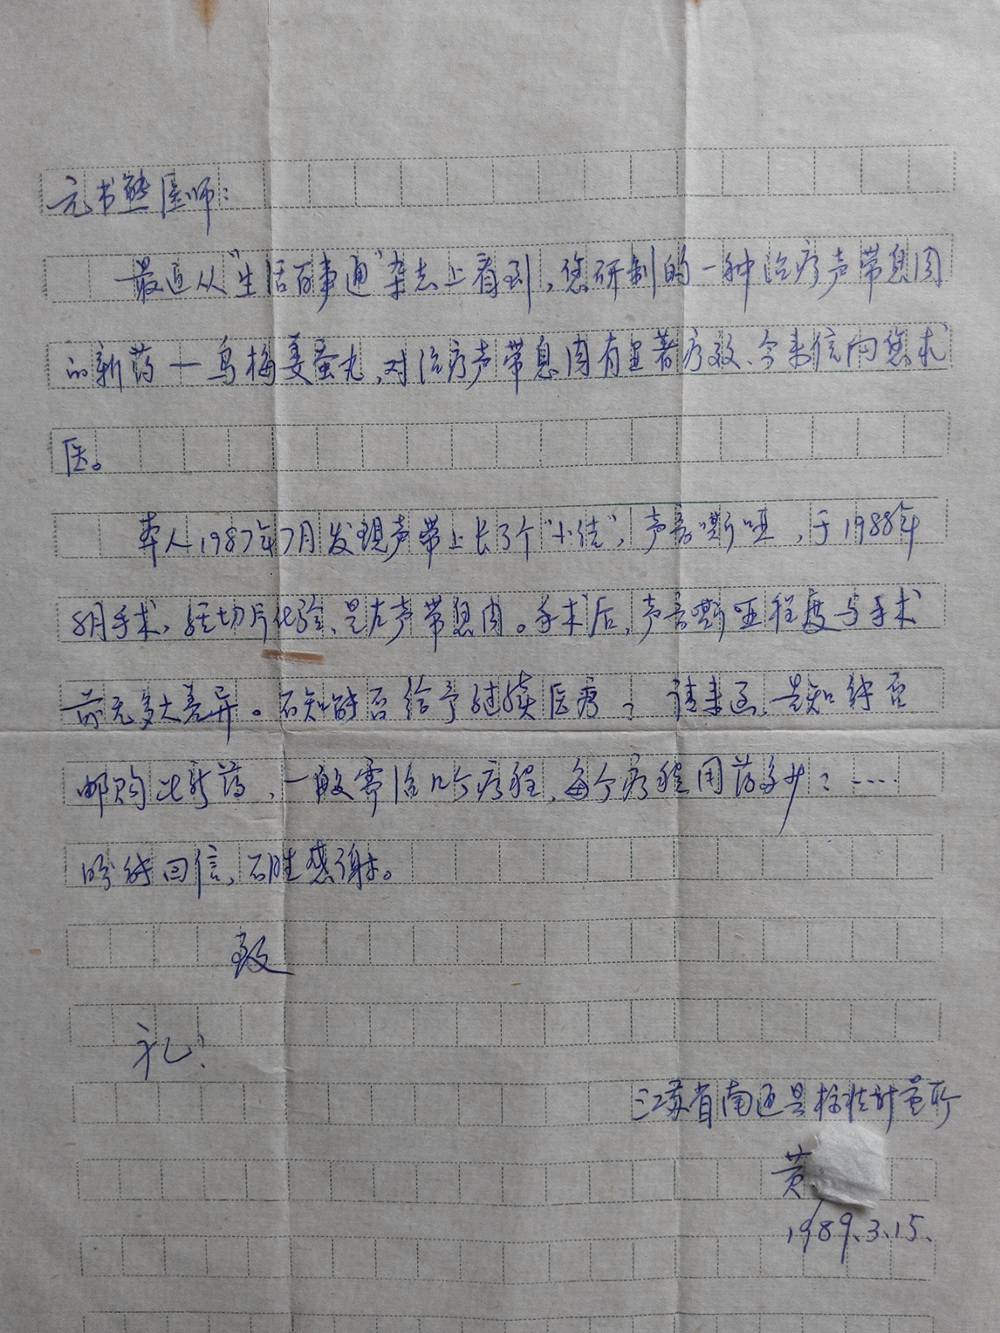 元书熊医师：
最近从"生活百事通"杂志上看到，您研制的一种治疗声带息肉
的新药一乌梅姜蚕丸，对治疗声带息肉有显著疗效、今来信向您求
医。
本人1987年7月发现声带上长了个"小结"，声音嘶哑，于1988年
8月手术，经切片化验、是左声带息肉。手术后，声音嘶哑程度与手术
前无多大差异。不知能否给予继续医疗？请来函、告知能否
邮购此新药，一般需治几个疗程，每个疗程用药多少？……
盼能回信、不胜感谢。
致
礼！
江苏省南通县标准计量所
黄
1989.3.15.